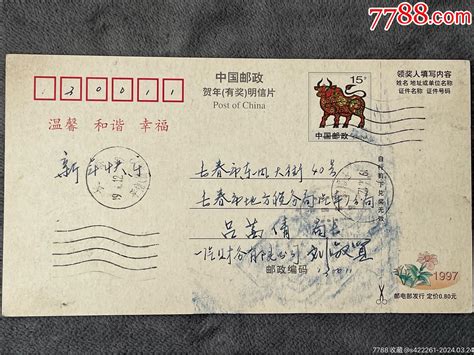 7788.com
中国邮政
贺年(有奖)明信片
Post of China
15分
中国邮政
领奖人填写内容
姓名 地址或单位名称
证件名称 证件号码
130011
温馨 和谐 幸福
新年快乐
长春市东四大街40号
长春市地方税务局汽车分局
吕万倩 局长
一汽财务有限公司
邮政编码
自行剪下兑奖无效
1997
邮电部发行 定价0.80元
7788收藏@s422261-2024.03.24